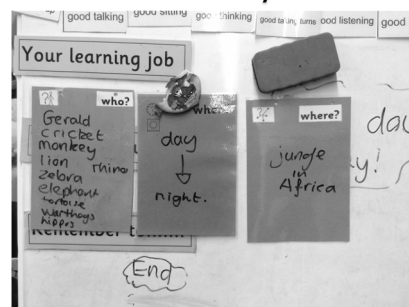 good talking
good sitting
good thinking
good taking turns
good listening
Your learning job
who?
Gerald
cricket
monkey
lion rhino
zebra
elephant
tortoise
warthogs
hippos
day
night.
where?
jungle
in
Africa
day
y!
End